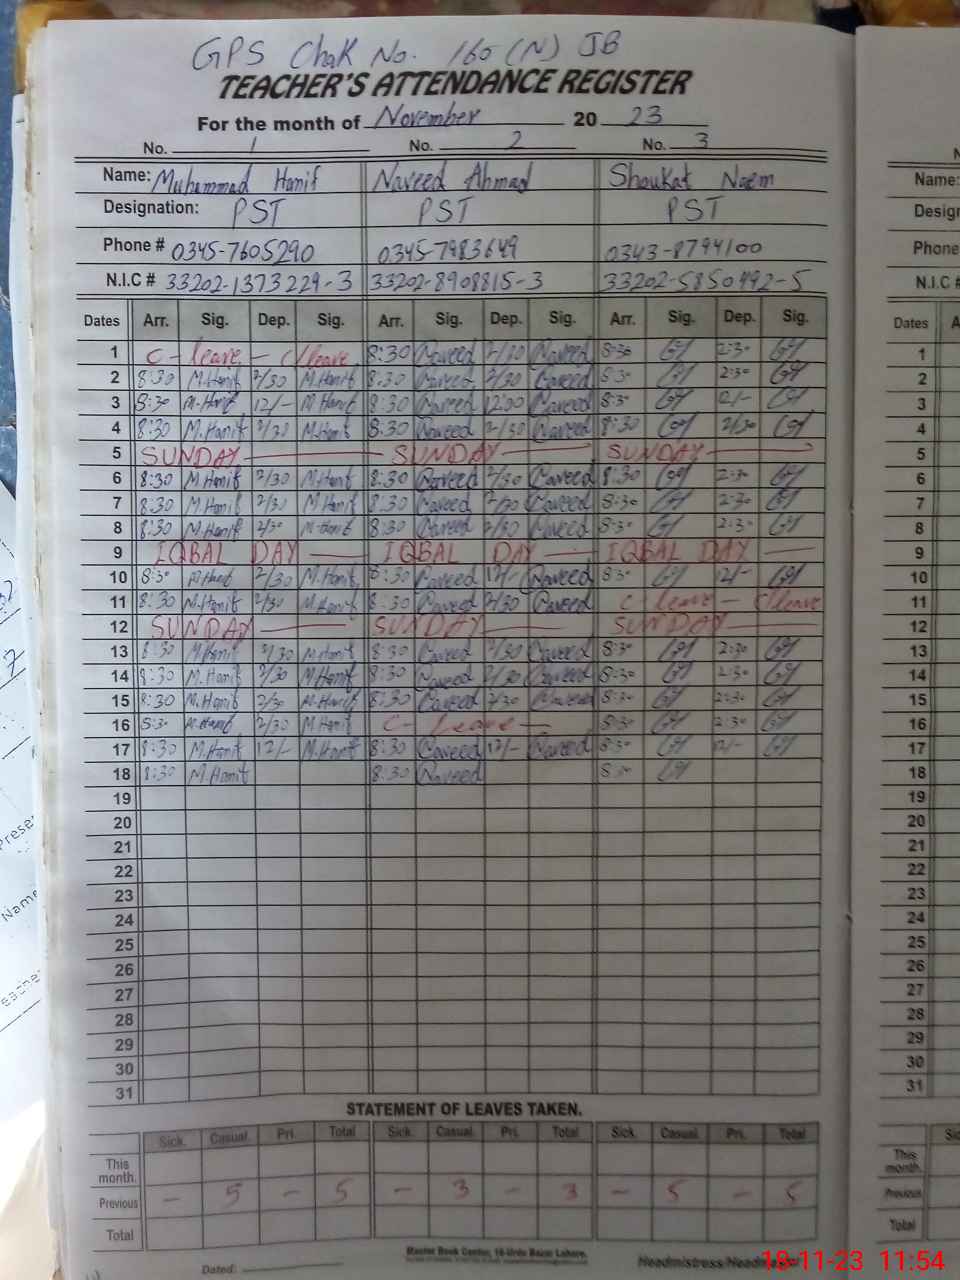 GPS Chak No. 160 (N) JB
TEACHER'S ATTENDANCE REGISTER
For the month of November 20 23
No. 1 No. 2 No. 3
Name: Muhammad Hanif Naveed Ahmad Shoukat Naem
Designation: PST PST PST
Phone # 0345-7605290 0345-7983649 0343-8794100
N.I.C # 33202-1373229-3 33202-8908815-3 33202-5850492-5
Dates Arr. Sig. Dep. Sig. Arr. Sig. Dep. Sig. Arr. Sig. Dep. Sig.
1 C-leave - C/leave 8:30 Naveed 2/30 Naveed 8:30 2:30
2 8:30 M.Hanif 2/30 M.Hanif 8:30 Naveed 2/30 Naveed 8:30 2:30
3 8:30 M.Hanif 12/- M.Hanif 8:30 Naveed 12:00 Naveed 8:30 12/-
4 8:30 M.Hanif 2/30 M.Hanif 8:30 Naveed 2/30 Naveed 8:30 2/30
5 SUNDAY SUNDAY SUNDAY
6 8:30 M.Hanif 2/30 M.Hanif 8:30 Naveed 2/30 Naveed 8:30 2:30
7 8:30 M.Hanif 2/30 M.Hanif 8:30 Naveed 2/30 Naveed 8:30 2:30
8 8:30 M.Hanif 2/30 M.Hanif 8:30 Naveed 2/30 Naveed 8:30 2:30
9 IQBAL DAY IQBAL DAY IQBAL DAY
10 8:30 M.Hanif 2/30 M.Hanif 8:30 Naveed 12/- Naveed 8:30 12/-
11 8:30 M.Hanif 2/30 M.Hanif 8:30 Naveed 2/30 Naveed C-leave - C/leave
12 SUNDAY SUNDAY SUNDAY
13 8:30 M.Hanif 2/30 M.Hanif 8:30 Naveed 2/30 Naveed 8:30 2:30
14 8:30 M.Hanif 2/30 M.Hanif 8:30 Naveed 2/30 Naveed 8:30 2:30
15 8:30 M.Hanif 2/30 M.Hanif 8:30 Naveed 2/30 Naveed 8:30 2:30
16 8:30 M.Hanif 2/30 M.Hanif C-leave - 8:30 2:30
17 8:30 M.Hanif 12/- M.Hanif 8:30 Naveed 12/- Naveed 8:30 12/-
18 8:30 M.Hanif 8:30 Naveed 8:30
19
20
21
22
23
24
25
26
27
28
29
30
31
STATEMENT OF LEAVES TAKEN.
Sick. Casual. Pri. Total Sick. Casual. Pri. Total Sick. Casual. Pri. Total
This month.
Previous - 5 - 5 - 3 - 3 - 5 - 5
Total
Master Book Center, 16-Urdu Bazar Lahore.
Dated: Headmistress/
18-11-23 11:54
Name:
Phone
N.I.C #
Dates
1
2
3
4
5
6
7
8
9
10
11
12
13
14
15
16
17
18
19
20
21
22
23
24
25
26
27
28
29
30
31
This month.
Previous
Total